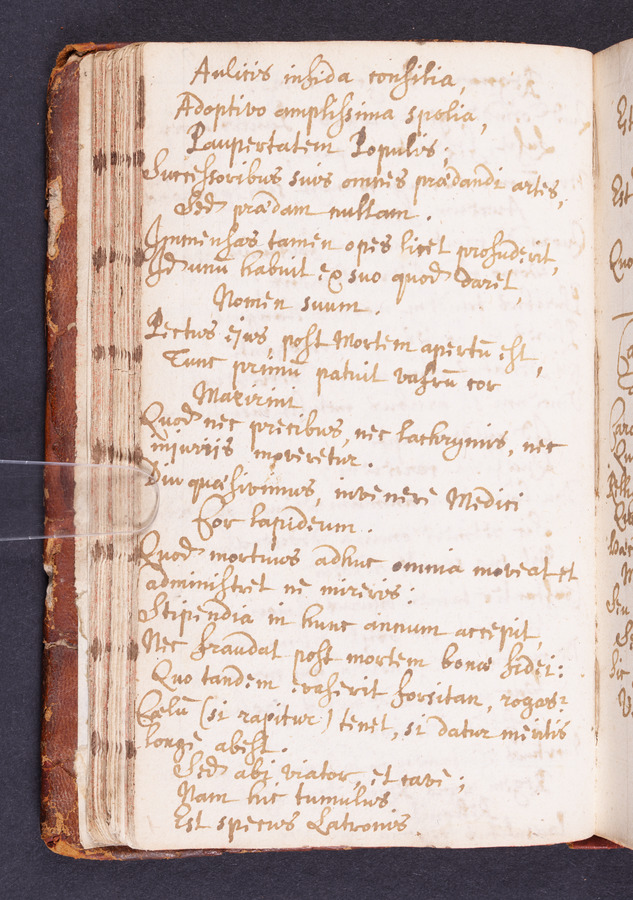 Aulicis infida consilia,
Adoptivo amplissima spolia,
Paupertatem Populis;
Successoribus suis omnes prædandi artes,
Sed prædam nullam.
Immensas tamen opes licet profuderit,
Id unū habuit ex suo quod daret,
Nomen suum.
Pectus ejus post Mortem apertū est,
Tunc primū patuit vafrū cor
Mazirini
Quod nec precibus, nec lachrymis, nec
injuriis moveretur.
Diu quæsivimus, invenere Medici
Cor lapideum.
Quod mortuus adhuc omnia moveat et
administret ne mireris:
Stipendia in hunc annum accepit,
Nec fraudat post mortem bonæ fidei:
Quo tandem evaserit forsitan, rogas?
Cælū (si rapitur) tenet, si datur meritis
longe abest.
Sed abi viator et cave;
Nam hic tumulus
Est specus Latronis.